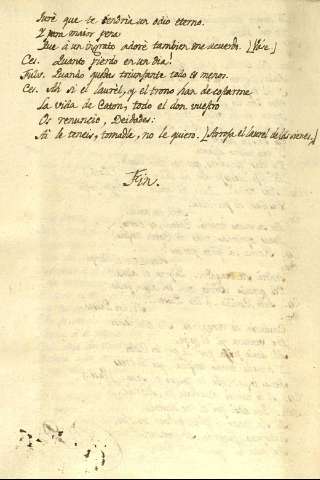 Jurè que te tendria un odio eterno.
Y para maior pena
Que à un ingrato adorè tambien me acuerdo. [Vase]
Ces. Quanto pierdo en un dia!
Fulv. Quando quedas triunfante todo es menos.
Ces. Ah si el laurèl, y el trono han de costarme
la vida de Caton, todo el don vuestro
Os renuncio, Deidades:
Ai le teneis, tomadle, no le quiero. [Arroja el laurel de las sienes.]
Fin.